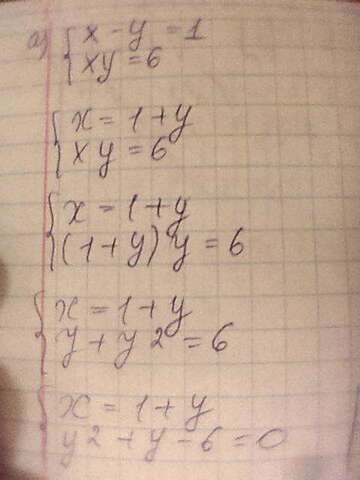 а) x - y = 1
xy = 6
x = 1 + y
xy = 6
x = 1 + y
(1 + y) y = 6
x = 1 + y
y + y2 = 6
x = 1 + y
y2 + y - 6 = 0